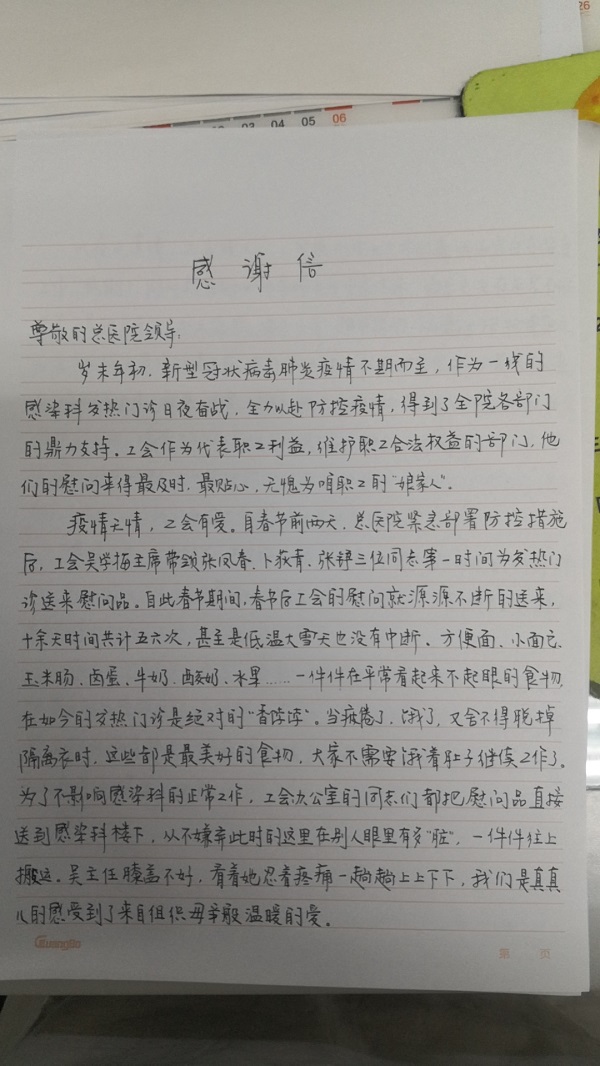 26
03 04 05 06
感谢信
尊敬的总医院领导:
岁末年初,新型冠状病毒肺炎疫情不期而至,作为一线的
感染科发热门诊日夜奋战,全力以赴防控疫情,得到了全院各部门
的鼎力支持。工会作为代表职工利益,维护职工合法权益的部门,他
们的慰问来得最及时、最贴心,无愧为咱职工的“娘家人”。
疫情无情,工会有爱。自春节前两天,总医院紧急部署防控措施
后,工会吴学梅主席带领张凤春、卜荻青、张铮三位同志第一时间为发热门
诊送来慰问品。自此春节期间,春节后工会的慰问就源源不断的送来,
十余天时间共计五六次,甚至是低温大雪天也没有中断。方便面、小面包、
玉米肠、卤蛋、牛奶、酸奶、水果……一件件在平常看起来不起眼的食物
在如今的发热门诊是绝对的“香饽饽”。当疲惫了、饿了,又舍不得脱掉
隔离衣时,这些都是最美好的食物,大家不需要饿着肚子继续工作了。
为了不影响感染科的正常工作,工会办公室的同志们都把慰问品直接
送到感染科楼下,从不嫌弃此时的这里在别人眼里有多“脏”,一件件往上
搬运。吴主任膝盖不好,看着她忍着疼痛一趟趟上上下下,我们是真真
儿的感受到了来自组织母亲般温暖的爱。
GuangBo
第 页